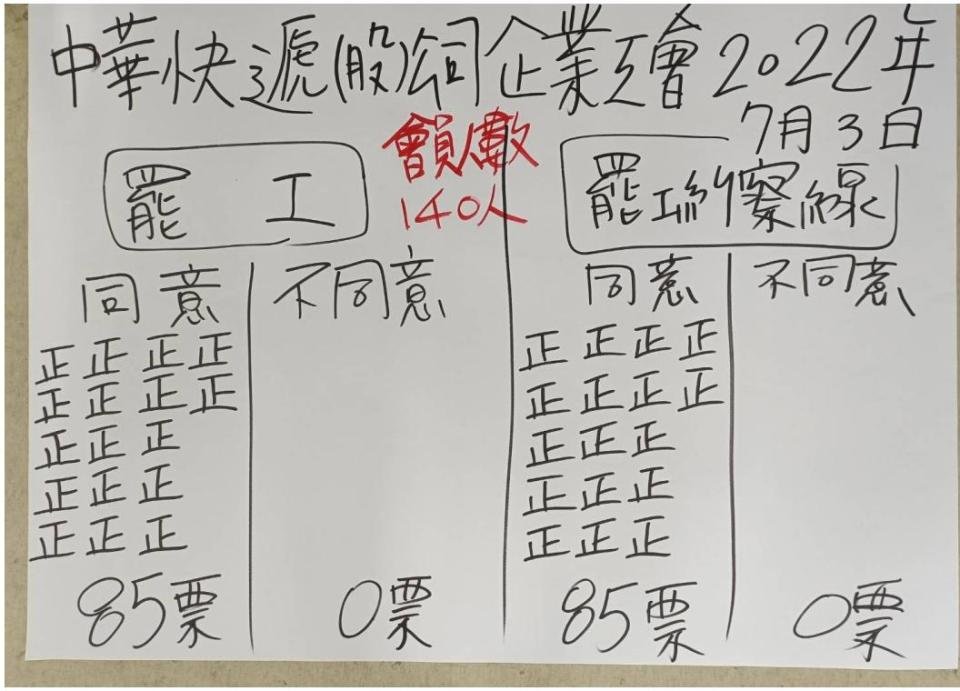 中華快遞(股)公司企業工會2022年
7月3日
會員人數
140人
罷工
同意
正正正正
正正正正
正正正
正正正
正正正
85票
不同意
0票
罷工糾察線
同意
正正正正
正正正正
正正正
正正正
正正正
85票
不同意
0票